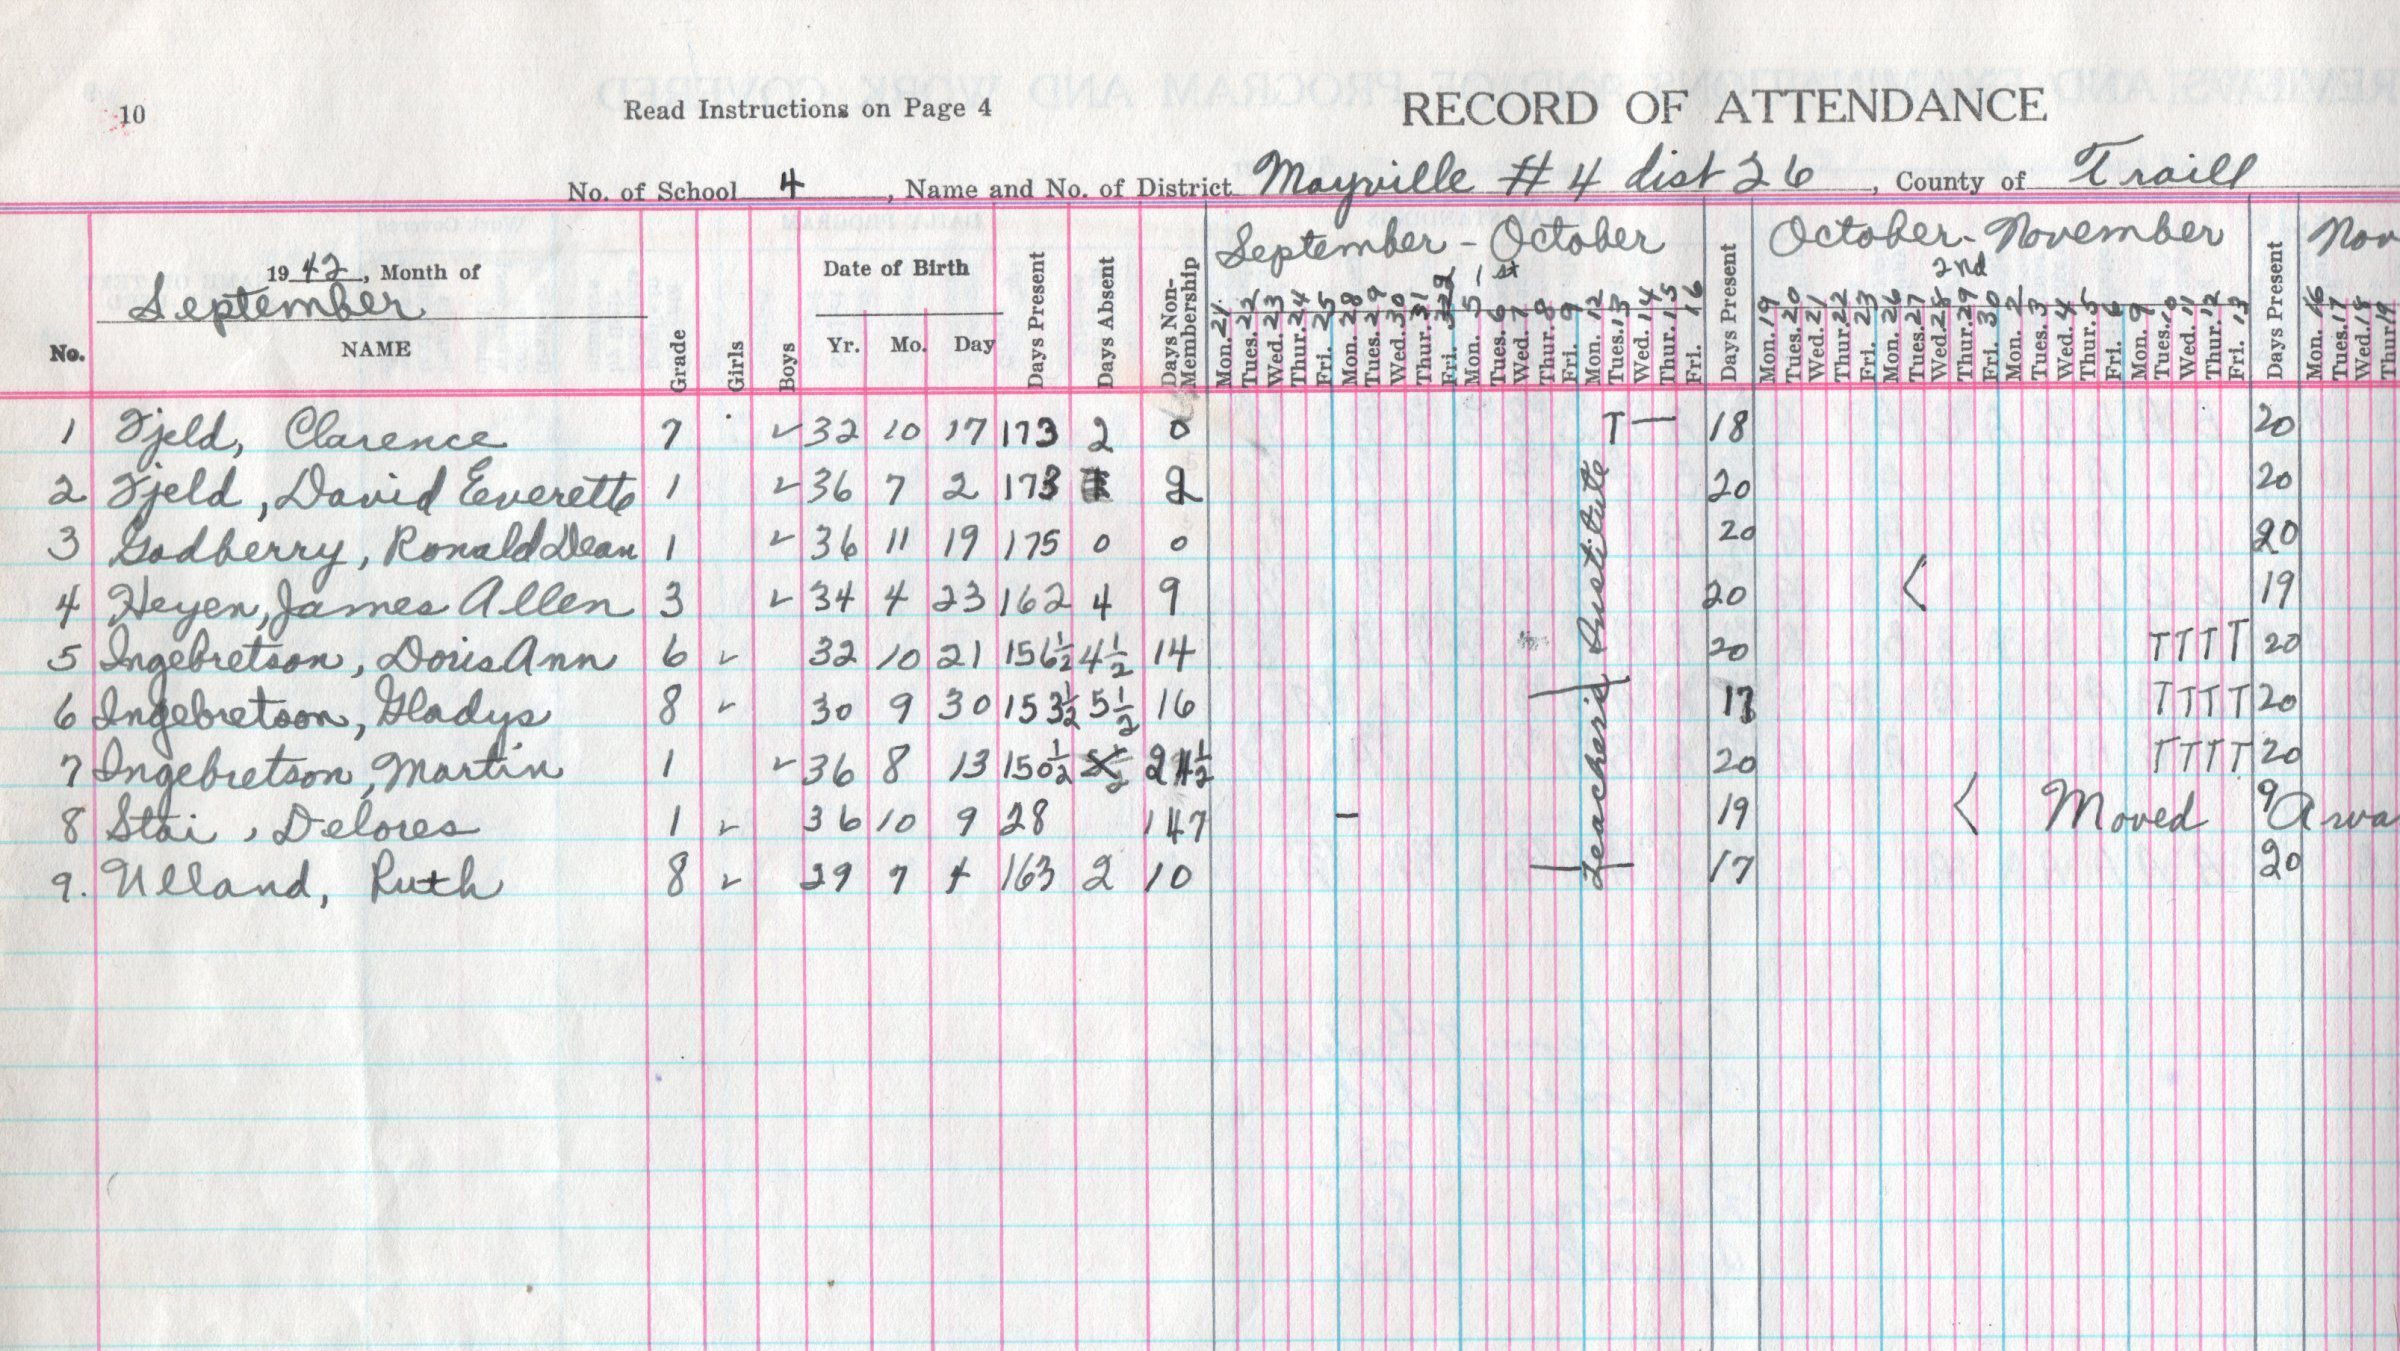 10 Read Instructions on Page 4 RECORD OF ATTENDANCE
No. of School 4, Name and No. of District Mayville #4 dist 26, County of Traill
September - October October - November Nov
1942, Month of Date of Birth 1st 2nd
September
No. NAME Grade Girls Boys Yr. Mo. Day Days Present Days Absent Days Non-Membership Mon. 21 Tues. 22 Wed. 23 Thur. 24 Fri. 25 Mon. 28 Tues. 29 Wed. 30 Thur. Fri. Mon. 5 Tues. 6 Wed. 7 Thur. 8 Fri. 9 Mon. 12 Tues. 13 Wed. 14 Thur. 15 Fri. 16 Days Present Mon. 19 Tues. 20 Wed. 21 Thur. 22 Fri. 23 Mon. 26 Tues. 27 Wed. 28 Thur. 29 Fri. 30 Mon. 2 Tues. 3 Wed. 4 Thur. 5 Fri. 6 Mon. 9 Tues. 10 Wed. 11 Thur. 12 Fri. 13 Days Present Mon. 16 Tues. 17 Wed. 18 Thur. 19
1 Fjeld, Clarence 7 ✓ 32 10 17 173 2 0 T — 18 20
2 Fjeld, David Everette 1 ✓ 36 7 2 173 2 20 20
3 Godberry, Ronald Dean 1 ✓ 36 11 19 175 0 0 20 20
4 Heyen, James Allen 3 ✓ 34 4 23 162 4 9 20 < 19
5 Ingebretson, Doris Ann 6 ✓ 32 10 21 156 1/2 4 1/2 14 20 T T T T 20
6 Ingebretson, Gladys 8 ✓ 30 9 30 153 1/2 5 1/2 16 17 T T T T 20
7 Ingebretson, Martin 1 ✓ 36 8 13 150 1/2 20 T T T T 20
8 Stai, Delores 1 ✓ 36 10 9 28 147 - 19 < Moved 9 Awa
9. Ulland, Ruth 8 ✓ 29 7 4 163 2 10 17 20
Teacher's Institute